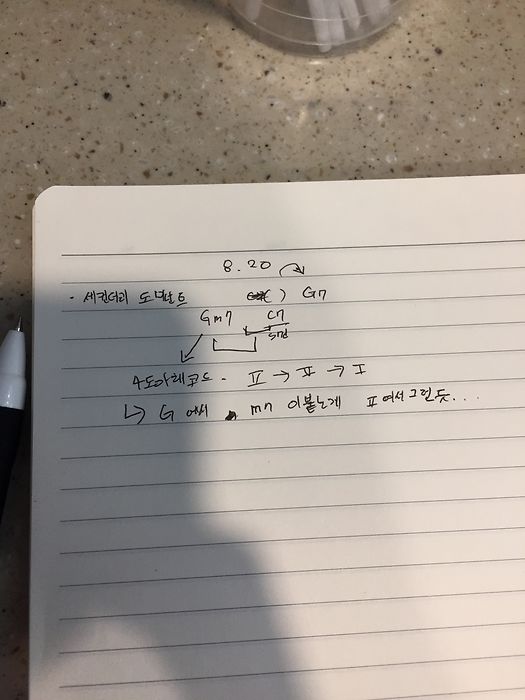 8.20
· 세컨더리 도미난트 ( ) G7
Gm7 C7
5도
4도아래코드. II → V → I
↳ G 에서 m7 이붙는게 II여서그런듯...